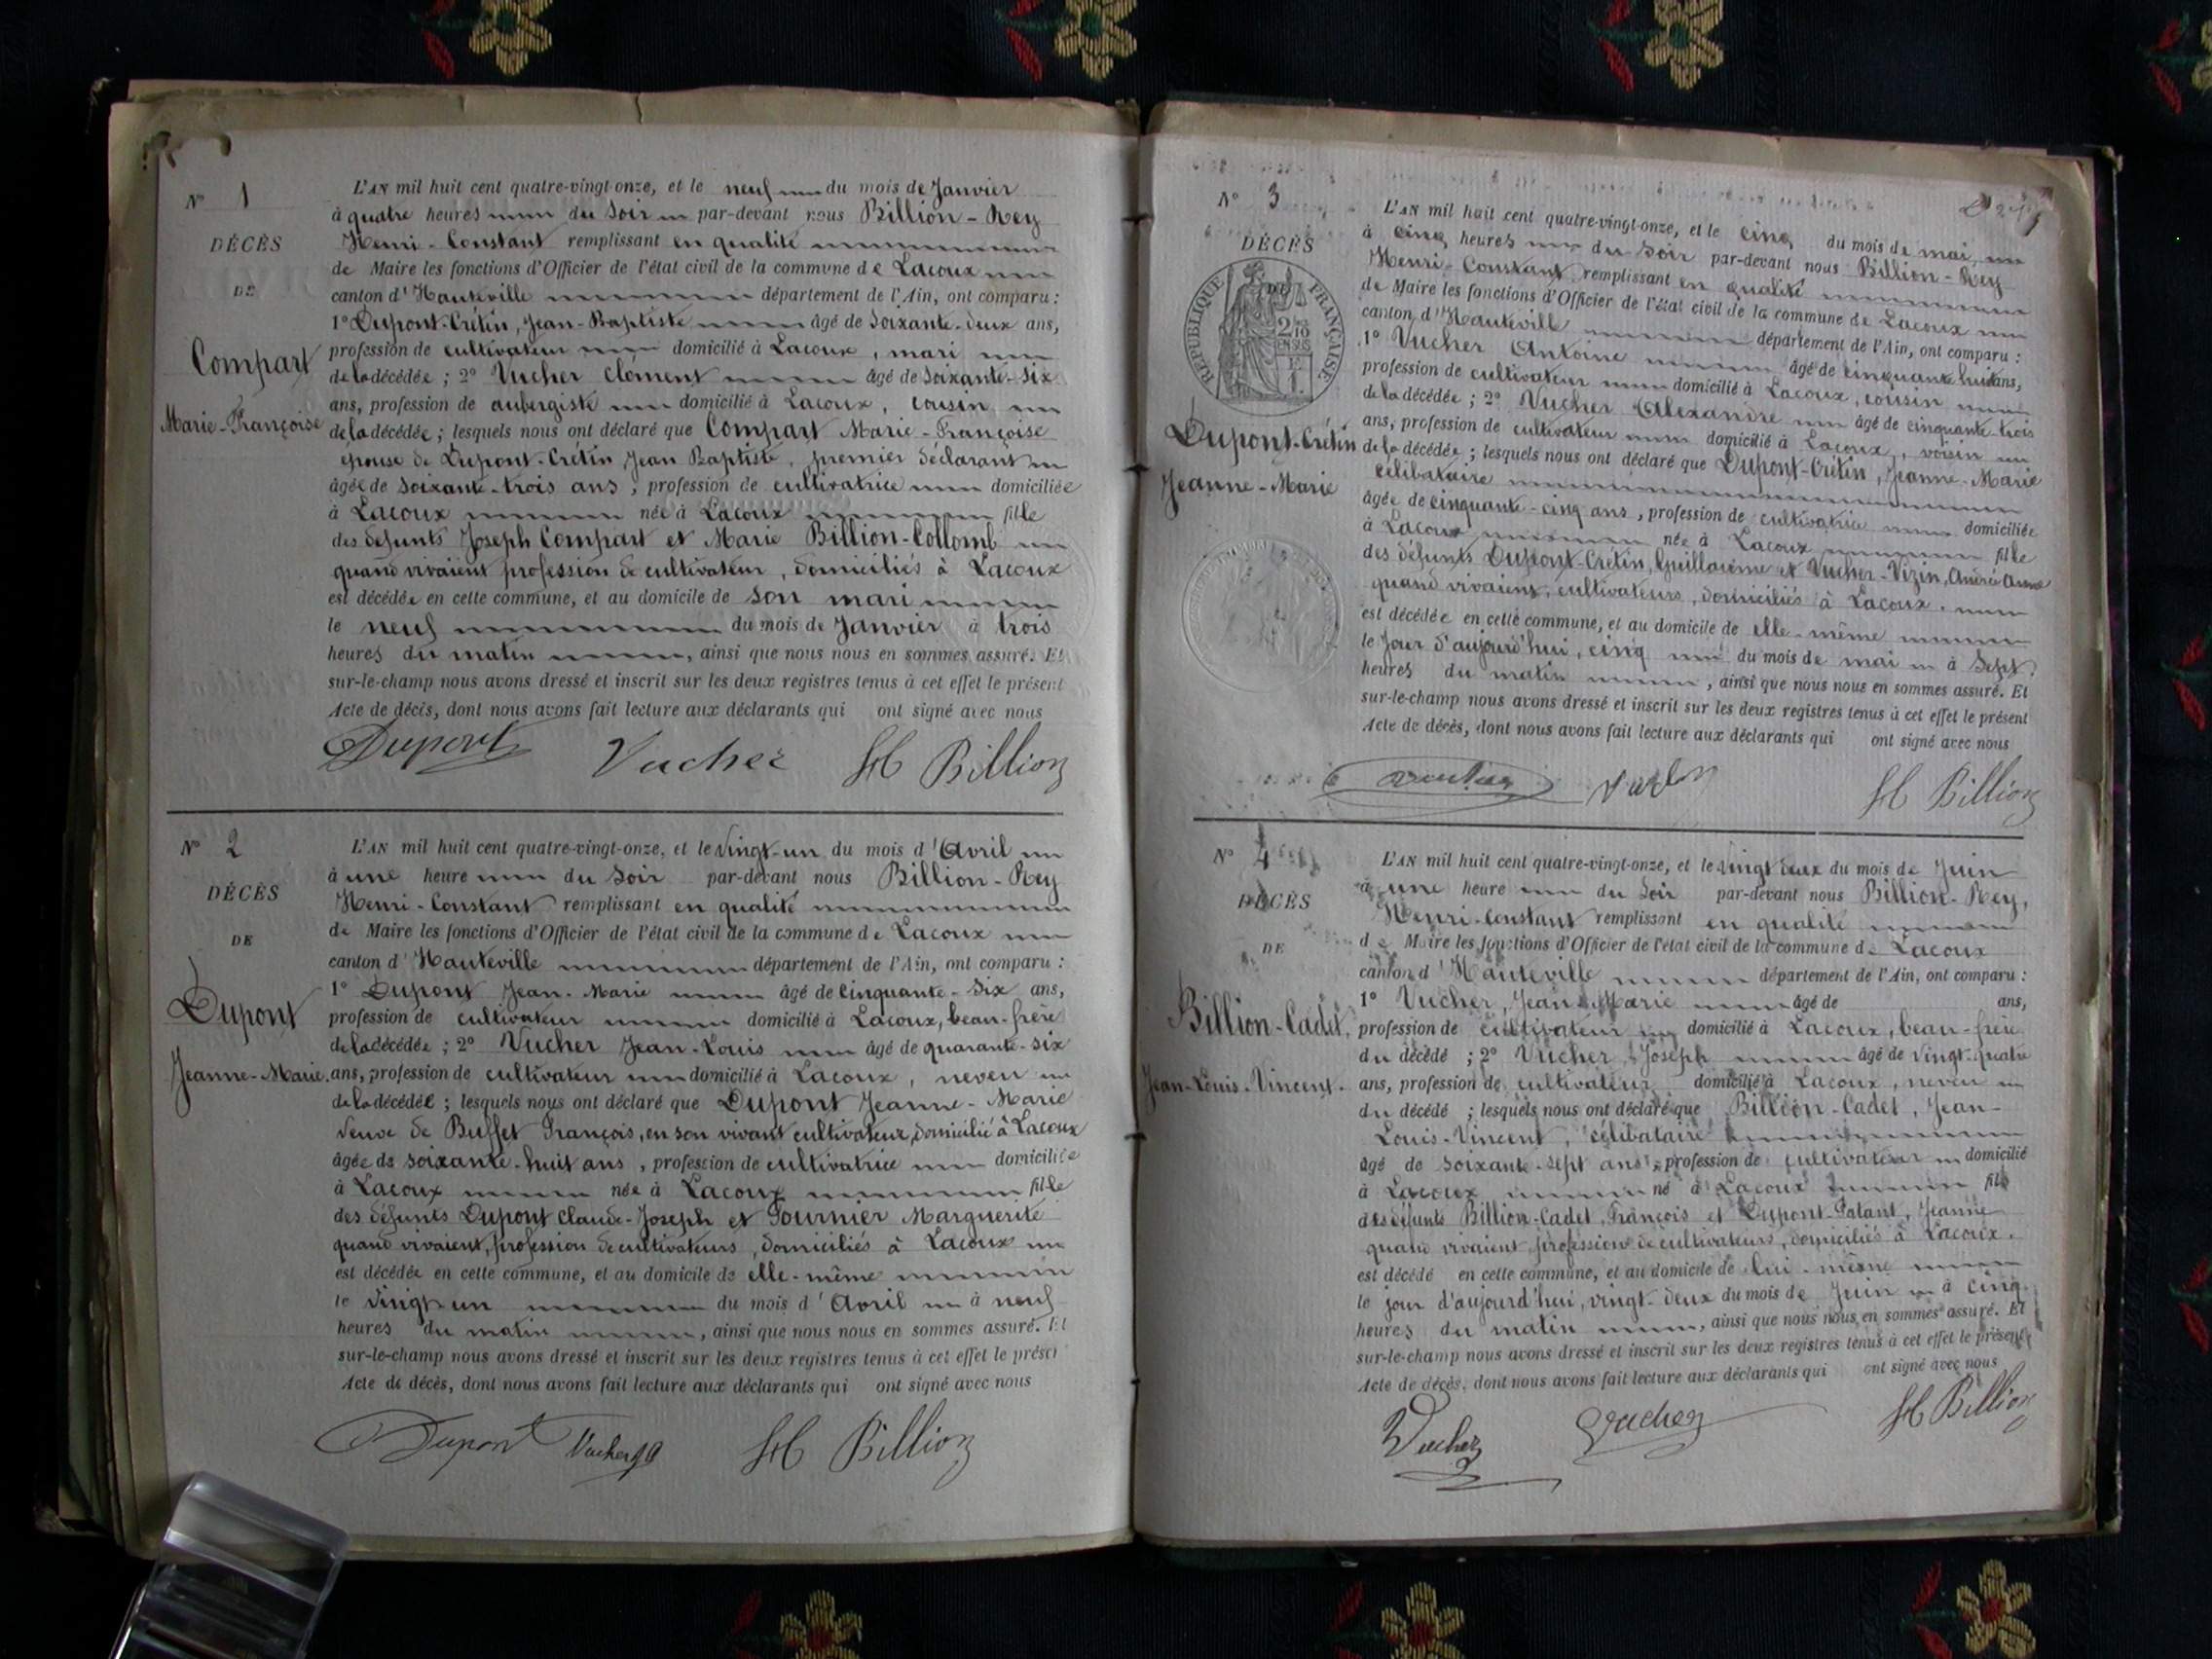 N° 1
DÉCÈS
DE
Compart
Marie-Françoise
L'AN mil huit cent quatre-vingt-onze, et le neuf du mois de Janvier
à quatre heures du soir par-devant nous Billion-Rey
Henri-Constant remplissant en qualité
de Maire les fonctions d'Officier de l'état civil de la commune de Lacoux
canton d'Hauteville département de l'Ain, ont comparu :
1° Dupont-Crétin, Jean-Baptiste âgé de soixante-deux ans,
profession de cultivateur domicilié à Lacoux, mari
de la décédée ; 2° Vucher Clément âgé de soixante-six
ans, profession de aubergiste domicilié à Lacoux, cousin
de la décédée ; lesquels nous ont déclaré que Compart Marie-Françoise
épouse de Dupont-Crétin Jean Baptiste, premier déclarant
âgée de soixante-trois ans, profession de cultivatrice domiciliée
à Lacoux née à Lacoux fille
des défunts Joseph Compart et Marie Billion-Collomb
quand vivaient profession de cultivateur, domiciliés à Lacoux
est décédée en cette commune, et au domicile de son mari
le neuf du mois de Janvier à trois
heures du matin, ainsi que nous nous en sommes assuré. Et
sur-le-champ nous avons dressé et inscrit sur les deux registres tenus à cet effet le présent
Acte de décès, dont nous avons fait lecture aux déclarants qui ont signé avec nous
Dupont Vucher HC Billion
N° 2
DÉCÈS
DE
Dupont
Jeanne-Marie.
L'AN mil huit cent quatre-vingt-onze, et le vingt-un du mois d'Avril
à une heure du soir par-devant nous Billion-Rey
Henri-Constant remplissant en qualité
de Maire les fonctions d'Officier de l'état civil de la commune de Lacoux
canton d'Hauteville département de l'Ain, ont comparu :
1° Dupont Jean-Marie âgé de cinquante-six ans,
profession de cultivateur domicilié à Lacoux, beau-frère
de la décédée ; 2° Vucher Jean-Louis âgé de quarante-six
ans, profession de cultivateur domicilié à Lacoux, neveu
de la décédée ; lesquels nous ont déclaré que Dupont Jeanne-Marie
veuve de Buffet François, en son vivant cultivateur, domicilié à Lacoux
âgée de soixante-huit ans, profession de cultivatrice domiciliée
à Lacoux née à Lacoux fille
des défunts Dupont Claude-Joseph et Fournier Marguerite
quand vivaient, profession de cultivateurs, domiciliés à Lacoux
est décédée en cette commune, et au domicile de elle-même
le vingt-un du mois d'Avril à neuf
heures du matin, ainsi que nous nous en sommes assuré. Et
sur-le-champ nous avons dressé et inscrit sur les deux registres tenus à cet effet le présen
Acte de décès, dont nous avons fait lecture aux déclarants qui ont signé avec nous
Dupont Vucher HC Billion
N° 3
DÉCÈS
DE
RÉPUBLIQUE FRANÇAISE
Dupont-Crétin
Jeanne-Marie
L'AN mil huit cent quatre-vingt-onze, et le cinq du mois de mai,
à cinq heures du soir par-devant nous Billion-Rey
Henri-Constant remplissant en qualité
de Maire les fonctions d'Officier de l'état civil de la commune de Lacoux
canton d'Hauteville département de l'Ain, ont comparu :
1° Vucher Antoine âgé de cinquante huit ans,
profession de cultivateur domicilié à Lacoux, cousin
de la décédée ; 2° Vucher Alexandre âgé de cinquante-trois
ans, profession de cultivateur domicilié à Lacoux, voisin
de la décédée ; lesquels nous ont déclaré que Dupont-Crétin, Jeanne-Marie
célibataire
âgée de cinquante-cinq ans, profession de cultivatrice domiciliée
à Lacoux née à Lacoux fille
des défunts Dupont-Crétin, Guillaume et Vucher-Vizin,
quand vivaient, cultivateurs, domiciliés à Lacoux.
est décédée en cette commune, et au domicile de elle-même
le jour d'aujourd'hui, cinq du mois de mai à sept
heures du matin, ainsi que nous nous en sommes assuré. Et
sur-le-champ nous avons dressé et inscrit sur les deux registres tenus à cet effet le présent
Acte de décès, dont nous avons fait lecture aux déclarants qui ont signé avec nous
HC Billion
N° 4
DÉCÈS
DE
Billion-Cadet,
Jean-Louis-Vincent.
L'AN mil huit cent quatre-vingt-onze, et le vingt deux du mois de Juin
à une heure du soir par-devant nous Billion-Rey,
Henri-Constant remplissant en qualité
de Maire les fonctions d'Officier de l'état civil de la commune de Lacoux
canton d'Hauteville département de l'Ain, ont comparu :
1° Vucher, Jean Marie âgé de ans,
profession de cultivateur domicilié à Lacoux, beau-frère
du décédé ; 2° Vucher, Joseph âgé de vingt-quatre
ans, profession de cultivateur domicilié à Lacoux, neveu
du décédé ; lesquels nous ont déclaré que Billion-Cadet, Jean-
Louis-Vincent, célibataire
âgé de soixante-sept ans, profession de cultivateur domicilié
à Lacoux né à Lacoux fils
des défunts Billion-Cadet, François et Dupont-Patant, Jeanne
quand vivaient profession de cultivateurs, domiciliés à Lacoux.
est décédé en cette commune, et au domicile de lui-même
le jour d'aujourd'hui, vingt-deux du mois de Juin à cinq
heures du matin, ainsi que nous nous en sommes assuré. Et
sur-le-champ nous avons dressé et inscrit sur les deux registres tenus à cet effet le présent
Acte de décès, dont nous avons fait lecture aux déclarants qui ont signé avec nous
Vucher Vucher HC Billion